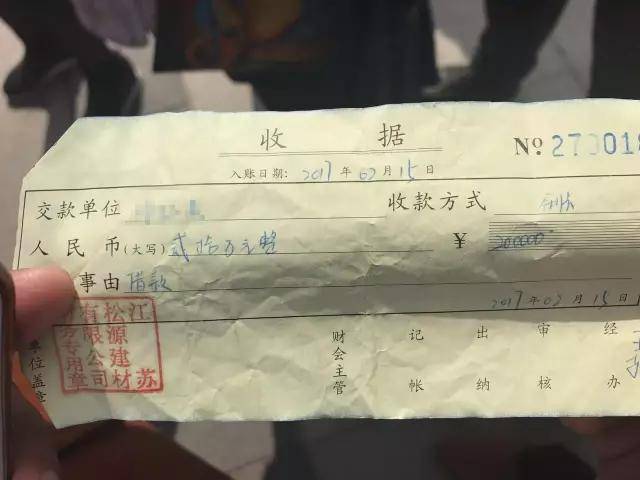 收 据
№ 27001
入账日期: 2017 年 02 月 15 日
交款单位 收款方式
人民币(大写) 贰拾万元整 ¥ 200000
事由 借款
2017 年 02 月 15 日
单位盖章 财会主管 记帐 出纳 审核 经办
江苏松源建材有限公司
专用章